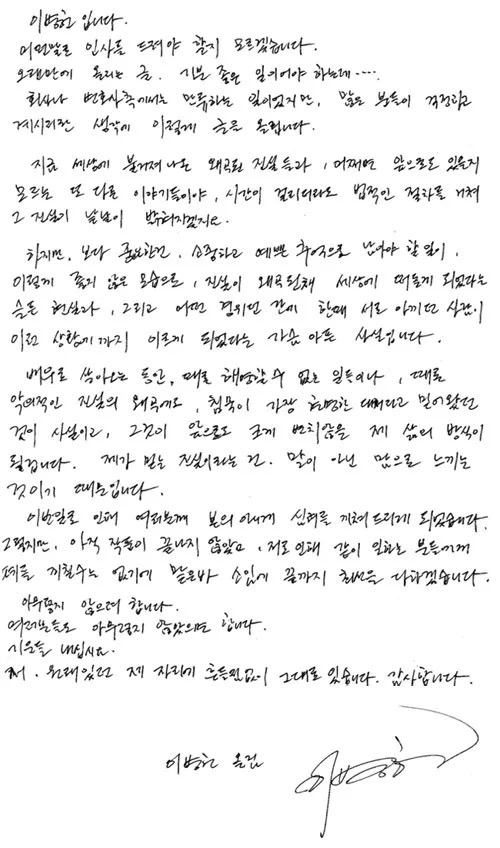 이병헌입니다.
어떤말로 인사를 드려야 할지 모르겠습니다.
오랜만에 올리는 글. 기분 좋은 일이어야 하는데....
회사나 변호사측에서는 만류하는 일이었지만, 많은 분들이 걱정하고
계시리란 생각에 이렇게 글을 올립니다.
지금 세상에 불거져나온 왜곡된 진실들과, 어쩌면 앞으로도 있을지
모르는 또 다른 이야기들이야, 시간이 걸리더라도 법적인 절차를 거쳐
그 진실이 낱낱이 밝혀지겠지요.
하지만, 보다 중요한건, 소중하고 예쁜 추억으로 남아야 할 일이,
이렇게 좋지 않은 모습으로, 진실이 왜곡된채 세상에 떠돌게 되었다는
슬픈 현실과, 그리고 어떤 경위던 간에 한때 서로 아끼던 사람이
이런 상황에까지 이르게 되었다는 가슴 아픈 사실입니다.
배우로 살아오는 동안, 때로 해명할 수 없는 일들이나, 때로
악의적인 진실의 왜곡에도, 침묵이 가장 현명한 대처라고 믿어왔던
것이 사실이고, 그것이 앞으로도 크게 변치않을 제 삶의 방식이
될겁니다. 제가 믿는 진실이라는 건. 말이 아닌 맘으로 느끼는
것이기 때문입니다.
이번일로 인해 여러분께 본의 아니게 심려를 끼쳐 드리게 되었습니다.
그렇지만, 아직 작품이 끝나지 않았고, 저로 인해 같이 일하는 분들에게
폐를 끼칠수는 없기에 맡은바 소임에 끝까지 최선을 다하겠습니다.
아무렇지 않으려 합니다.
여러분들도 아무렇지 않았으면 합니다.
기운들 내십시요.
저. 원래있던 제 자리에 흔들림없이 그대로 있습니다. 감사합니다.
이병헌 올림